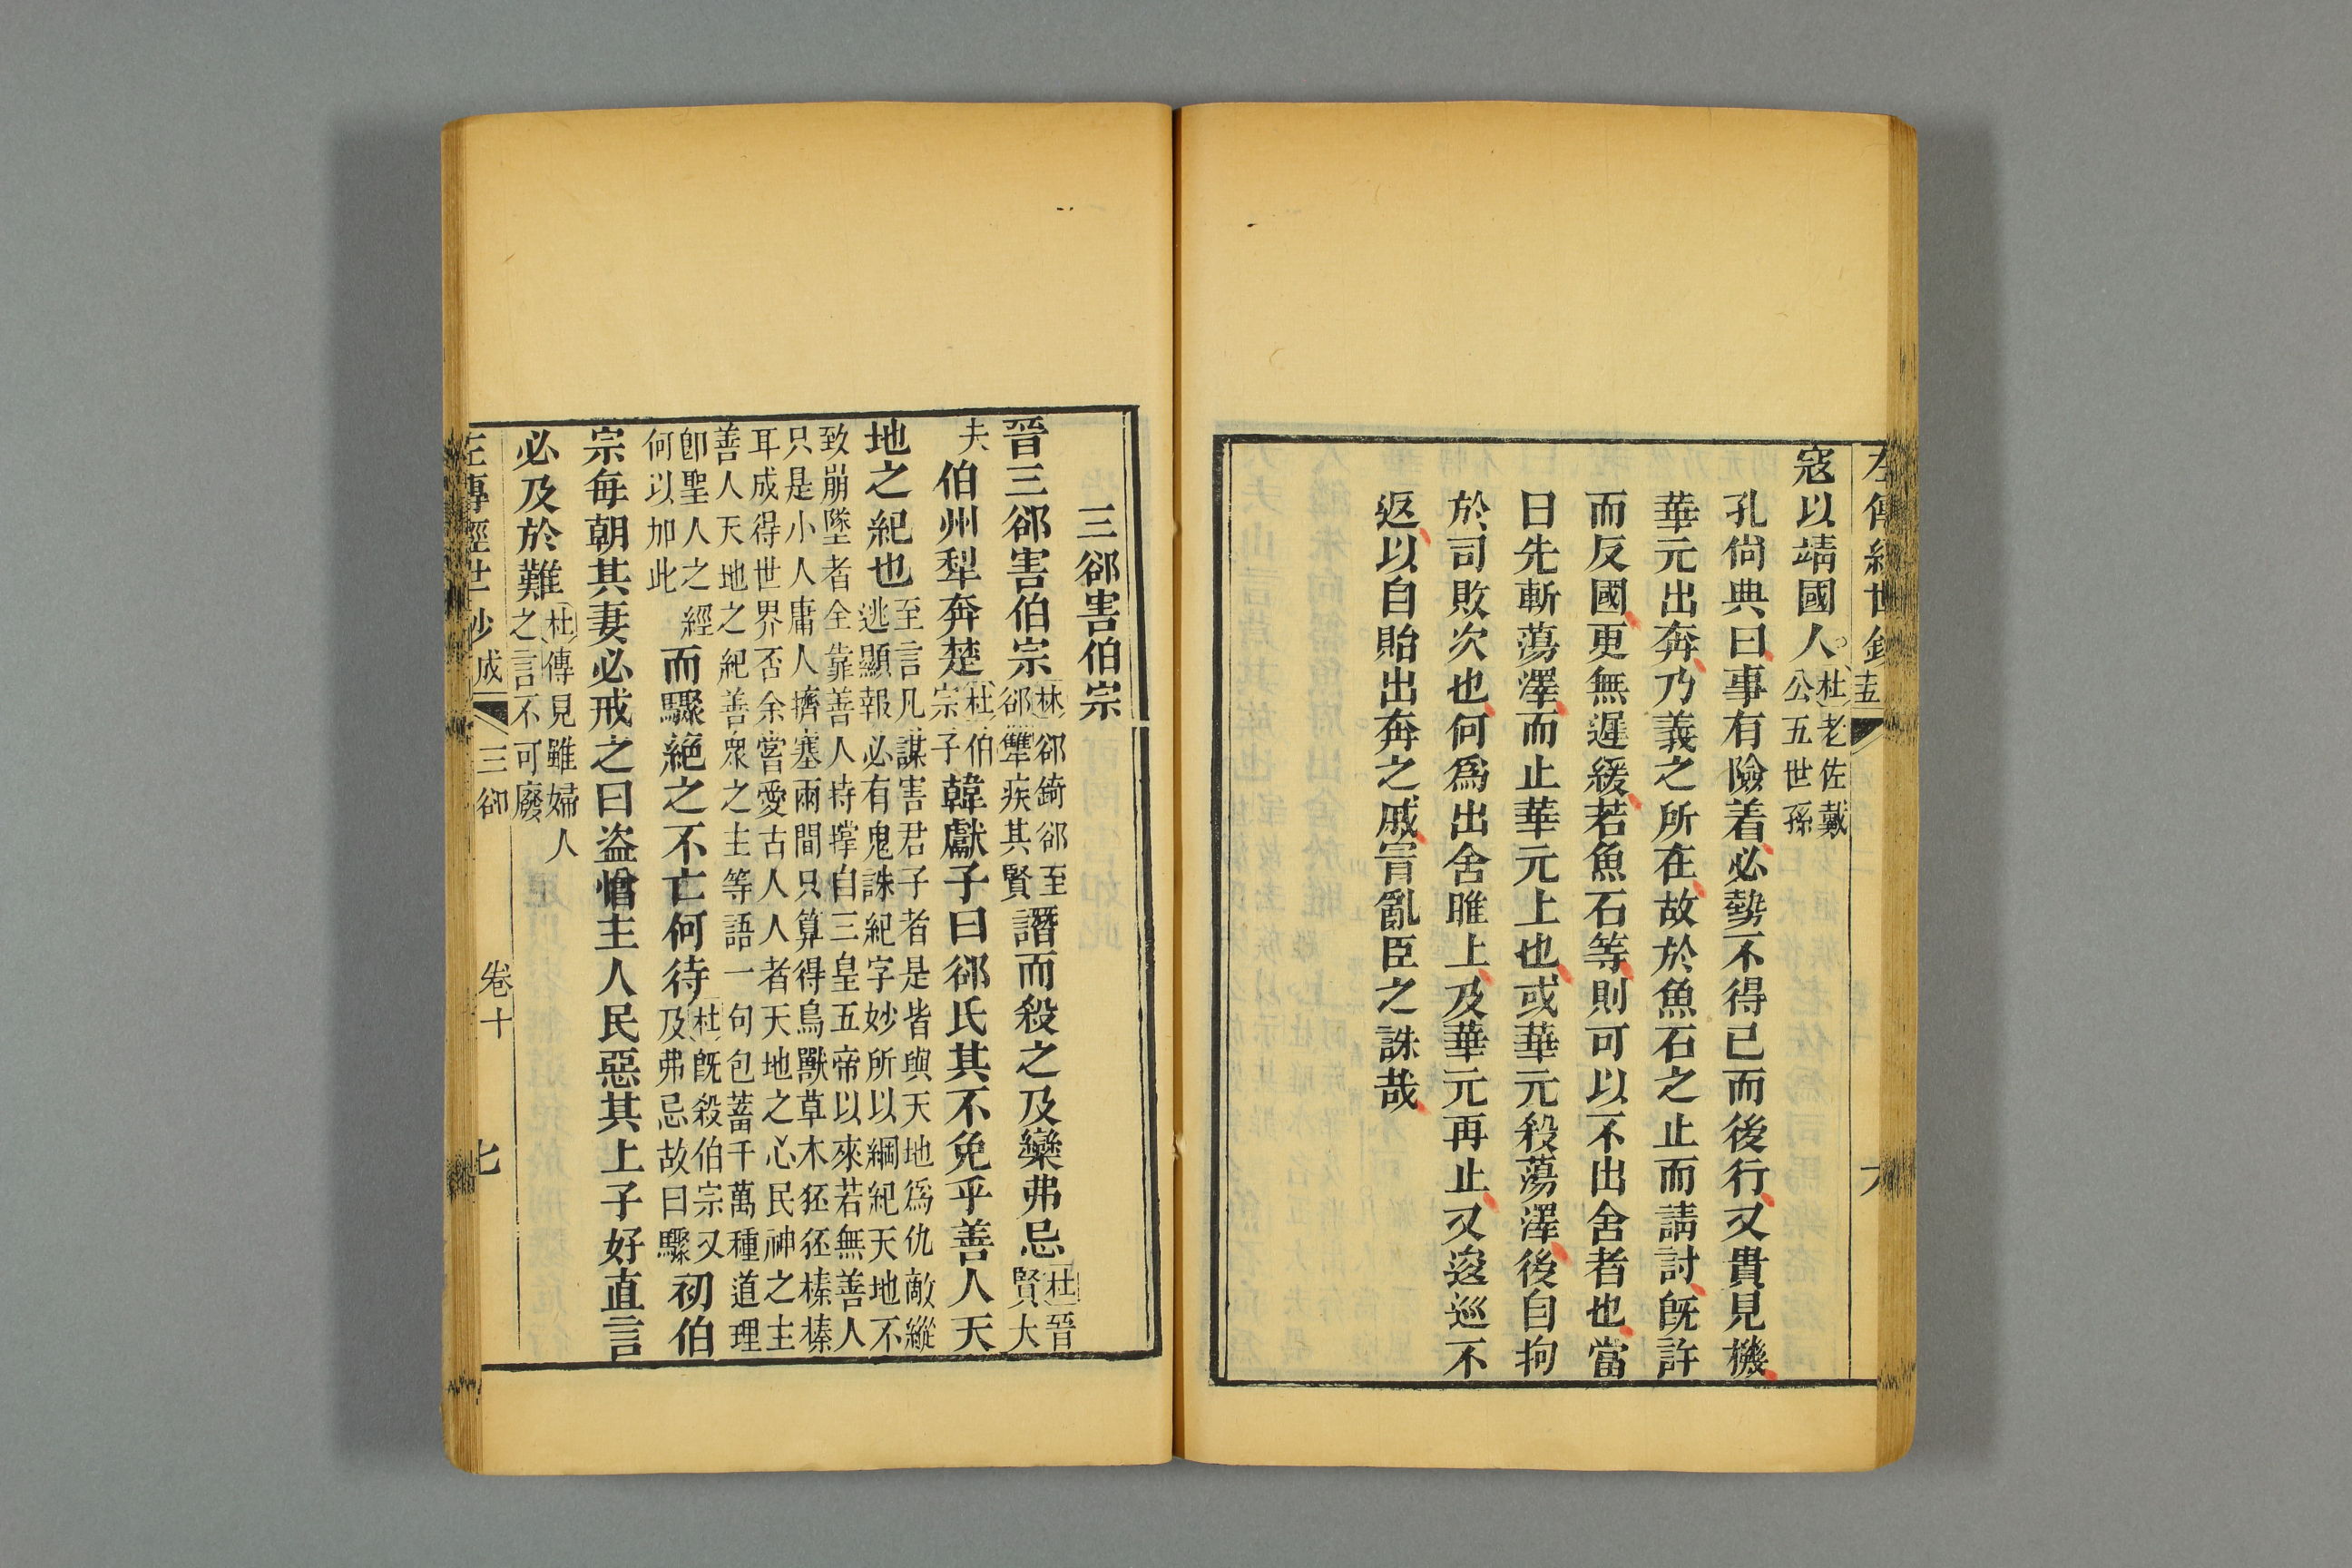 寇以靖國人杜老佐戴公五世孫
孔尙典曰事有險着必勢不得已而後行又貴見機
華元出奔乃義之所在故於魚石之止而請討旣許
而反國更無遲緩若魚石等則可以不出舍者也當
日先斬蕩澤而止華元上也或華元殺蕩澤後自拘
於司敗次也何爲出舍睢上及華元再止又逡巡不
返以自貽出奔之戚官亂臣之誅哉
三郤害伯宗
晉三郤害伯宗林郤錡郤至郤犨疾其賢譖而殺之及欒弗忌杜晉賢大
夫伯州犁奔楚杜伯宗子韓獻子曰郤氏其不免乎善人天
地之紀也至言凡謀害君子者是皆與天地爲仇敵縱逃顯報必有鬼誅紀字妙所以綱紀天地不
致崩墜者全靠善人持撑自三皇五帝以來若無善人只是小人庸人擠塞兩間只算得鳥獸草木狉狉榛榛
耳成得世界否余嘗愛古人人者天地之心民神之主善人天地之紀善衆之主等語一句包蓄千萬種道理
卽聖人之經何以加此而驟絕之不亡何待杜旣殺伯宗又及弗忌故曰驟初伯
宗每朝其妻必戒之曰盜憎主人民惡其上子好直言
必及於難杜傳見雖婦人之言不可廢
左傳經世鈔 成 三郤 卷十 七